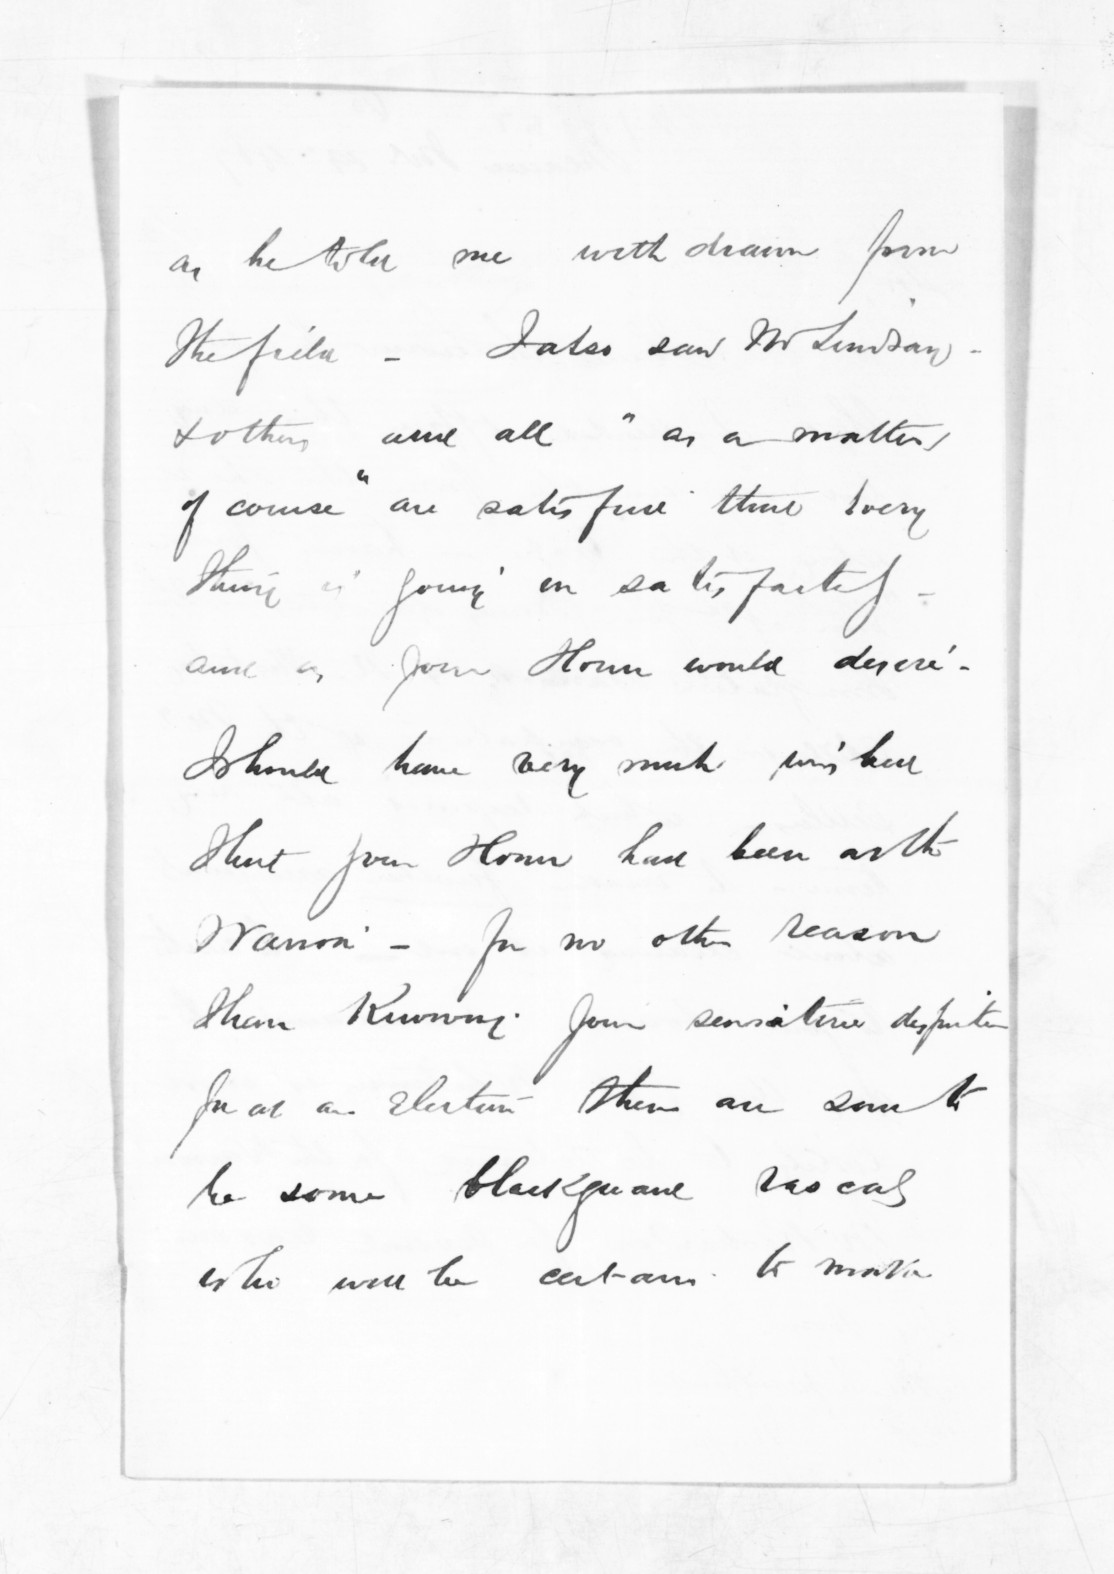 as he told me withdrawn from
the field - I also saw Mr Lindsay -
& others and all "as a matter
of course" are satisfied that every
thing is going on satisfactory -
and as your Honor would desire -
I should have very much wished
that your Honor had been at the
Wairoa - for no other reason
than knowing your sensitive disposition
for at an election there are sure to
be some blackguard rascals
who will be certain to make